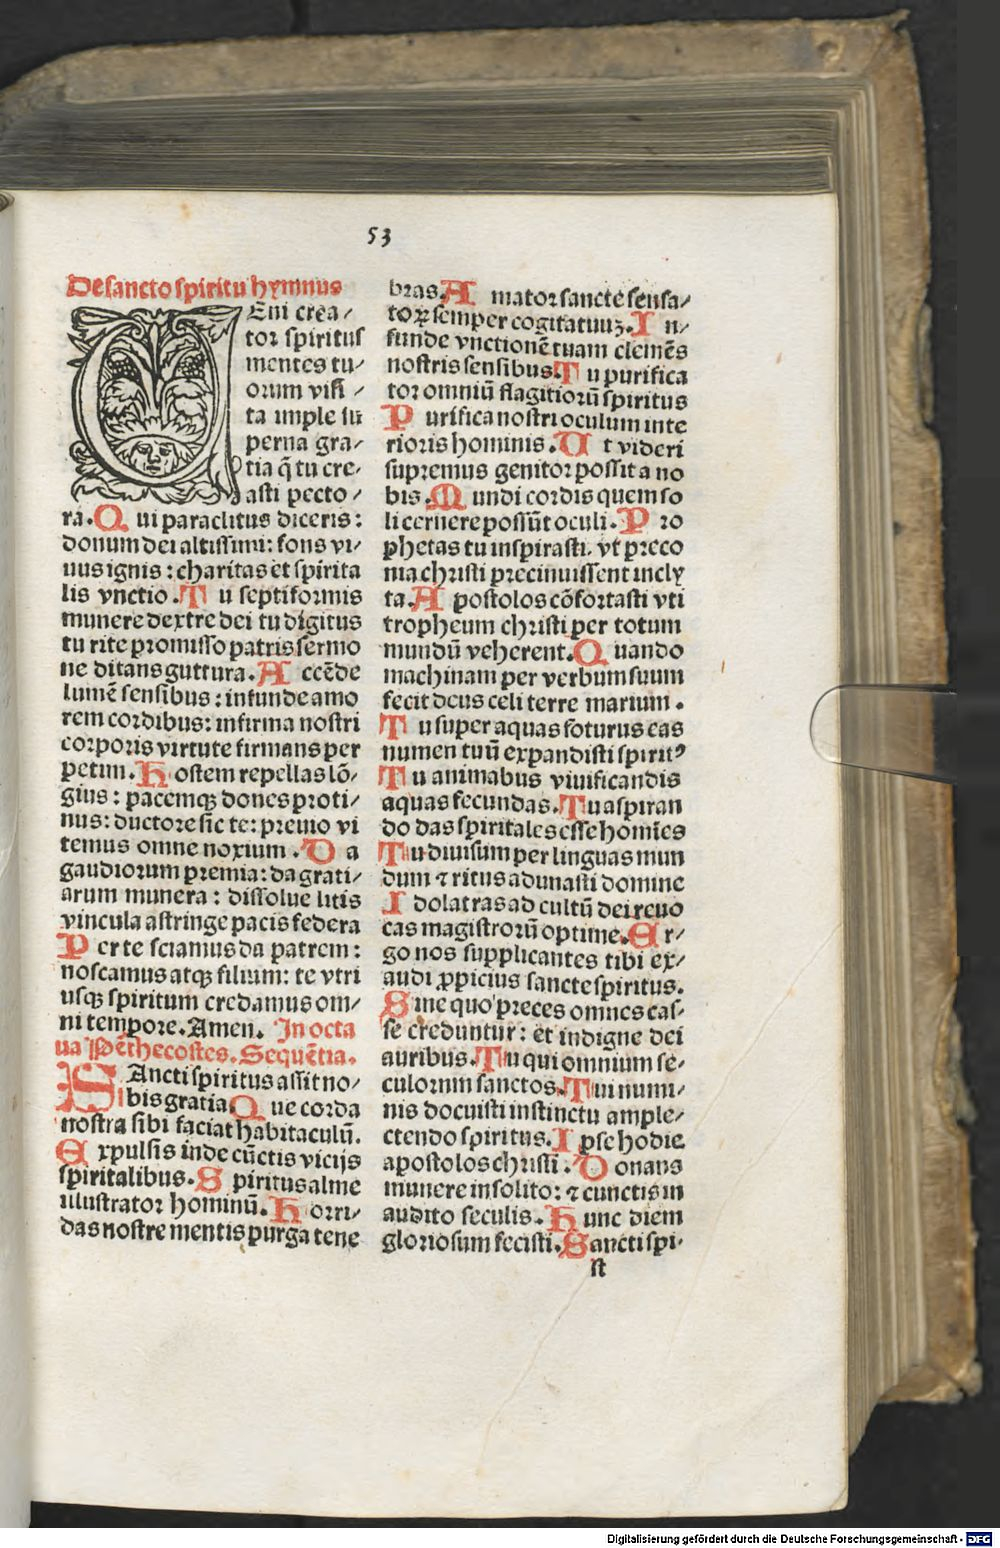 53
De sancto spiritu hymnus
VEni crea/
tor spiritus
mentes tu/
orum visi /
ta imple su
perna gra/
tia q̄ tu cre/
asti pecto /
ra. Q ui paraclitus diceris:
donum dei altissimi: fons vi/
uus ignis: charitas et spirita
lis vnctio. T u septiformis
munere dextre dei tu digitus
tu rite promisso patris sermo
ne ditans guttura. A ccēde
lumē sensibus: infunde amo
rem cordibus: infirma nostri
corporis virtute firmans per
petim. H ostem repellas lō/
gius: pacemqꝫ dones proti/
nus: ductore sic te: preuio vi
temus omne noxium. D a
gaudiorum premia: da grati/
arum munera: dissolue litis
vincula astringe pacis federa
P er te sciamus da patrem:
noscamus atqꝫ filium: te vtri
usqꝫ spiritum credamus om/
ni tempore. Amen. In octa
ua Pēthecostes. Sequētia.
SAncti spiritus assit no/
bis gratia. Q ue corda
nostra sibi faciat habitaculū.
E xpulsis inde cūctis vicijs
spiritalibus. S piritus alme
illustrator hominū. H orri/
das nostre mentis purga tene
bras. A mator sancte sensa/
toꝝ semper cogitatuuꝫ. I n/
funde vnctionē tuam clemēs
nostris sensibus. T u purifica
tor omniū flagitiorū spiritus
P urifica nostri oculum inte
rioris hominis. U t videri
supremus genitor possit a no
bis. M undi cordis quem so
li cernere possūt oculi. P ro
phetas tu inspirasti, vt preco
nia christi precinuissent incly
ta. A postolos cōfortasti vti
tropheum christi per totum
mundū veherent. Q uando
machinam per verbum suum
fecit deus celi terre marium.
T u super aquas foturus eas
numen tuū expandisti spiritꝰ
T u animabus viuificandis
aquas fecundas. Tu aspiran
do das spiritales esse homīes
Tu diuisum per linguas mun
dum ⁊ ritus adunasti domine
I dolatras ad cultū dei reuo
cas magistrorū optime. E r/
go nos supplicantes tibi ex/
audi ꝓpicius sancte spiritus.
Sine quo preces omnes cas/
se creduntur: et indigne dei
auribus. Tu qui omnium se/
culorum sanctos. Tui numi/
nis docuisti instinctu ample/
ctendo spiritus. I pse hodie
apostolos christi. D onans
munere insolito: ⁊ cunctis in
audito seculis. H unc diem
gloriosum fecisti. Sancti spi/
st
Digitalisierung gefördert durch die Deutsche Forschungsgemeinschaft - DFG